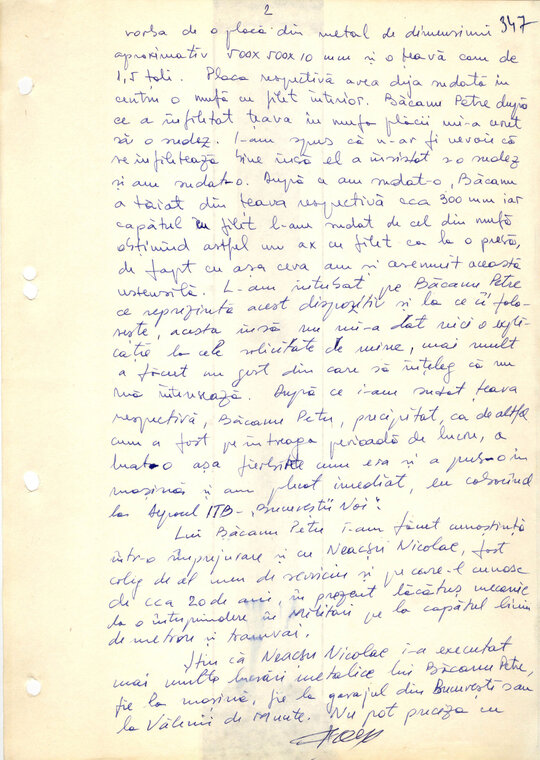 2
347
vorba de o placă din metal de dimensiuni
aproximativ 500x500x10 mm și o țeavă cam de
1,5 țoli. Placa respectivă avea deja sudată în
centru o mufă cu filet interior. Băcanu Petre după
ce a înfiletat țeava în mufa plăcii mi-a cerut
să o sudez. I-am spus că n-ar fi nevoie că
se înfiletează bine însă el a insistat s-o sudez
și am sudat-o. După ce am sudat-o, Băcanu
a tăiat din țeava respectivă cca 300 mm iar
capătul cu filet l-am sudat de cel din mufă
obținînd astfel un ax cu filet ca la o presă,
de fapt cu așa ceva am și asemuit această
ustensilă. L-am întrebat pe Băcanu Petre
ce reprezintă acest dispozitiv și la ce îi folo-
sește, acesta însă nu mi-a dat nici o expli-
cație la cele solicitate de mine, mai mult
a făcut un gest din care să înțeleg că nu
mă interesează. După ce i-am sudat țeava
respectivă, Băcanu Petre, precipitat, ca de altfel
cum a fost pe întreaga perioadă de lucru, a
luat-o așa fierbinte cum era și a pus-o în
mașină și am plecat imediat, eu coborînd
la Depoul ITB - "Bucureștii Noi".
Lui Băcanu Petre i-am făcut cunoștință
într-o împrejurare și cu Neacșu Nicolae, fost
coleg de al meu de serviciu și pe care-l cunosc
de cca 20 de ani, în prezent lăcătuș mecanic
la o întreprindere în Militari pe la capătul liniei
de metrou și tramvai.
Știu că Neacșu Nicolae i-a executat
mai multe lucrări metalice lui Băcanu Petre,
fie la mașină, fie la garajul din București sau
la Vălenii de Munte. Nu pot preciza cu